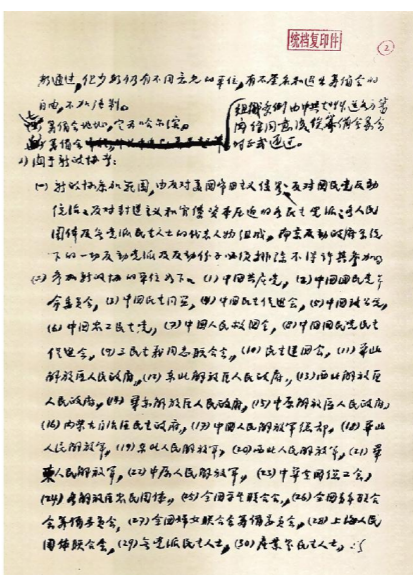 统档复印件
2
都通过,但少数仍有不同意见的单位,有不签名和退出筹备会的
自由,不加强制。
筹备会地址,定为哈尔滨。
筹备会
组织条例由中共
同意后经筹备会
时正式通过。
2)关于新政协者:
(一)新政协参加范围,由反对美国帝国主义侵略、反对国民党反动
统治、反对封建主义和官僚资本压迫的各民主党派、各人民
团体及无党派民主人士的代表人物组成,南京反动政府系统
下的一切反动党派及反动份子必须排除,不得许其参加。
(二)参加新政协的单位如下:(1)中国共产党,(2)中国国民党革
命委员会,(3)中国民主同盟,(4)中国民主促进会,(5)中国致公党,
(6)中国农工民主党,(7)中国人民救国会,(8)中国国民党民主
促进会,(9)三民主义同志联合会,(10)民主建国会,(11)华北
解放区人民政府,(12)东北解放区人民政府,(13)西北解放区
人民政府,(14)华东解放区人民政府,(15)中原解放区人民政府,
(16)内蒙古自治区民主政府,(17)中国人民解放军总部,(18)华北
人民解放军,(19)东北人民解放军,(20)西北人民解放军,(21)华
东人民解放军,(22)中原人民解放军,(23)中华全国总工会,
(24)各解放区农民团体,(25)全国学生联合会,(26)全国青年联合
会筹备委员会,(27)全国妇女联合会筹备委员会,(28)上海人民
团体联合会,(29)无党派民主人士,(30)产业界民主人士,